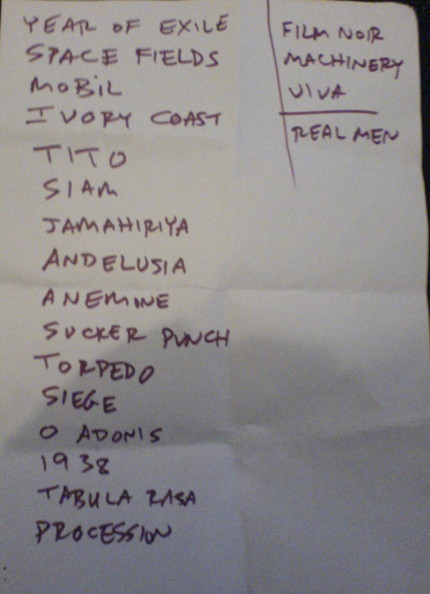 YEAR OF EXILE
SPACE FIELDS
MOBIL
IVORY COAST
TITO
SIAM
JAMAHIRIYA
ANDELUSIA
ANEMINE
SUCKER PUNCH
TORPEDO
SIEGE
O ADONIS
1938
TABULA RASA
PROCESSION
FILM NOIR
MACHINERY
VIVA
REAL MEN